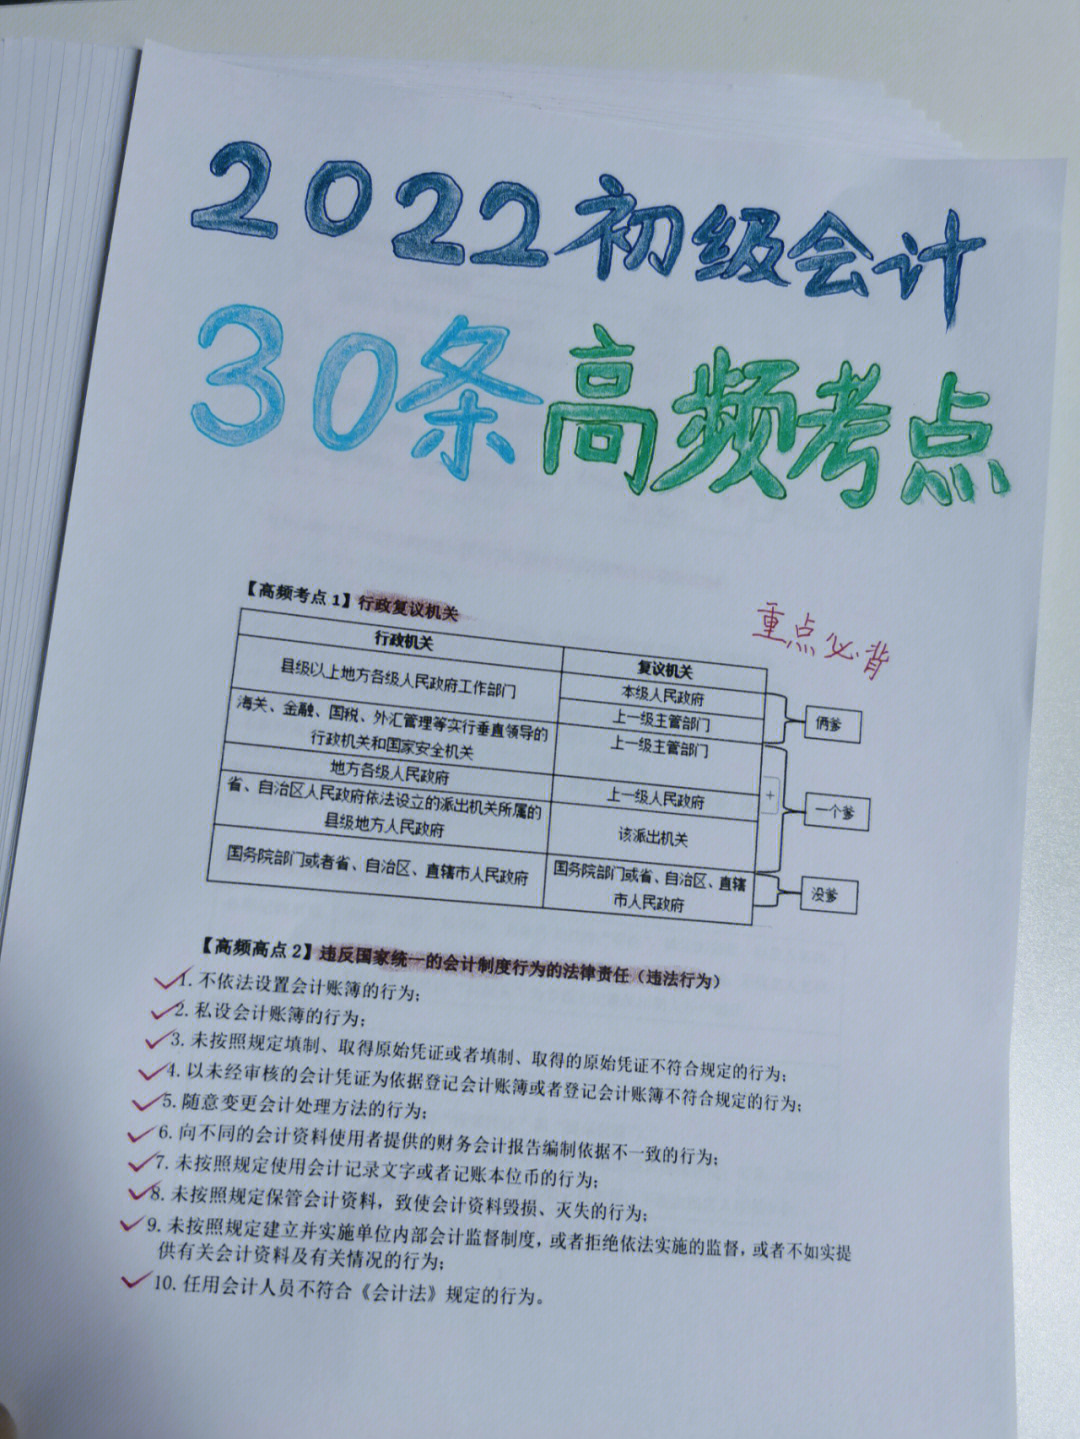 2022初级会计
30条高频考点
【高频考点 1】行政复议机关
重点必背
行政机关
复议机关
县级以上地方各级人民政府工作部门
本级人民政府
上一级主管部门
俩爹
海关、金融、国税、外汇管理等实行垂直领导的
行政机关和国家安全机关
上一级主管部门
地方各级人民政府
上一级人民政府
+
一个爹
省、自治区人民政府依法设立的派出机关所属的
县级地方人民政府
该派出机关
国务院部门或者省、自治区、直辖市人民政府
国务院部门或省、自治区、直辖
市人民政府
没爹
【高频高点 2】违反国家统一的会计制度行为的法律责任（违法行为）
1. 不依法设置会计账簿的行为；
2. 私设会计账簿的行为；
3. 未按照规定填制、取得原始凭证或者填制、取得的原始凭证不符合规定的行为；
4. 以未经审核的会计凭证为依据登记会计账簿或者登记会计账簿不符合规定的行为；
5. 随意变更会计处理方法的行为；
6. 向不同的会计资料使用者提供的财务会计报告编制依据不一致的行为；
7. 未按照规定使用会计记录文字或者记账本位币的行为；
8. 未按照规定保管会计资料，致使会计资料毁损、灭失的行为；
9. 未按照规定建立并实施单位内部会计监督制度，或者拒绝依法实施的监督，或者不如实提
供有关会计资料及有关情况的行为；
10. 任用会计人员不符合《会计法》规定的行为。